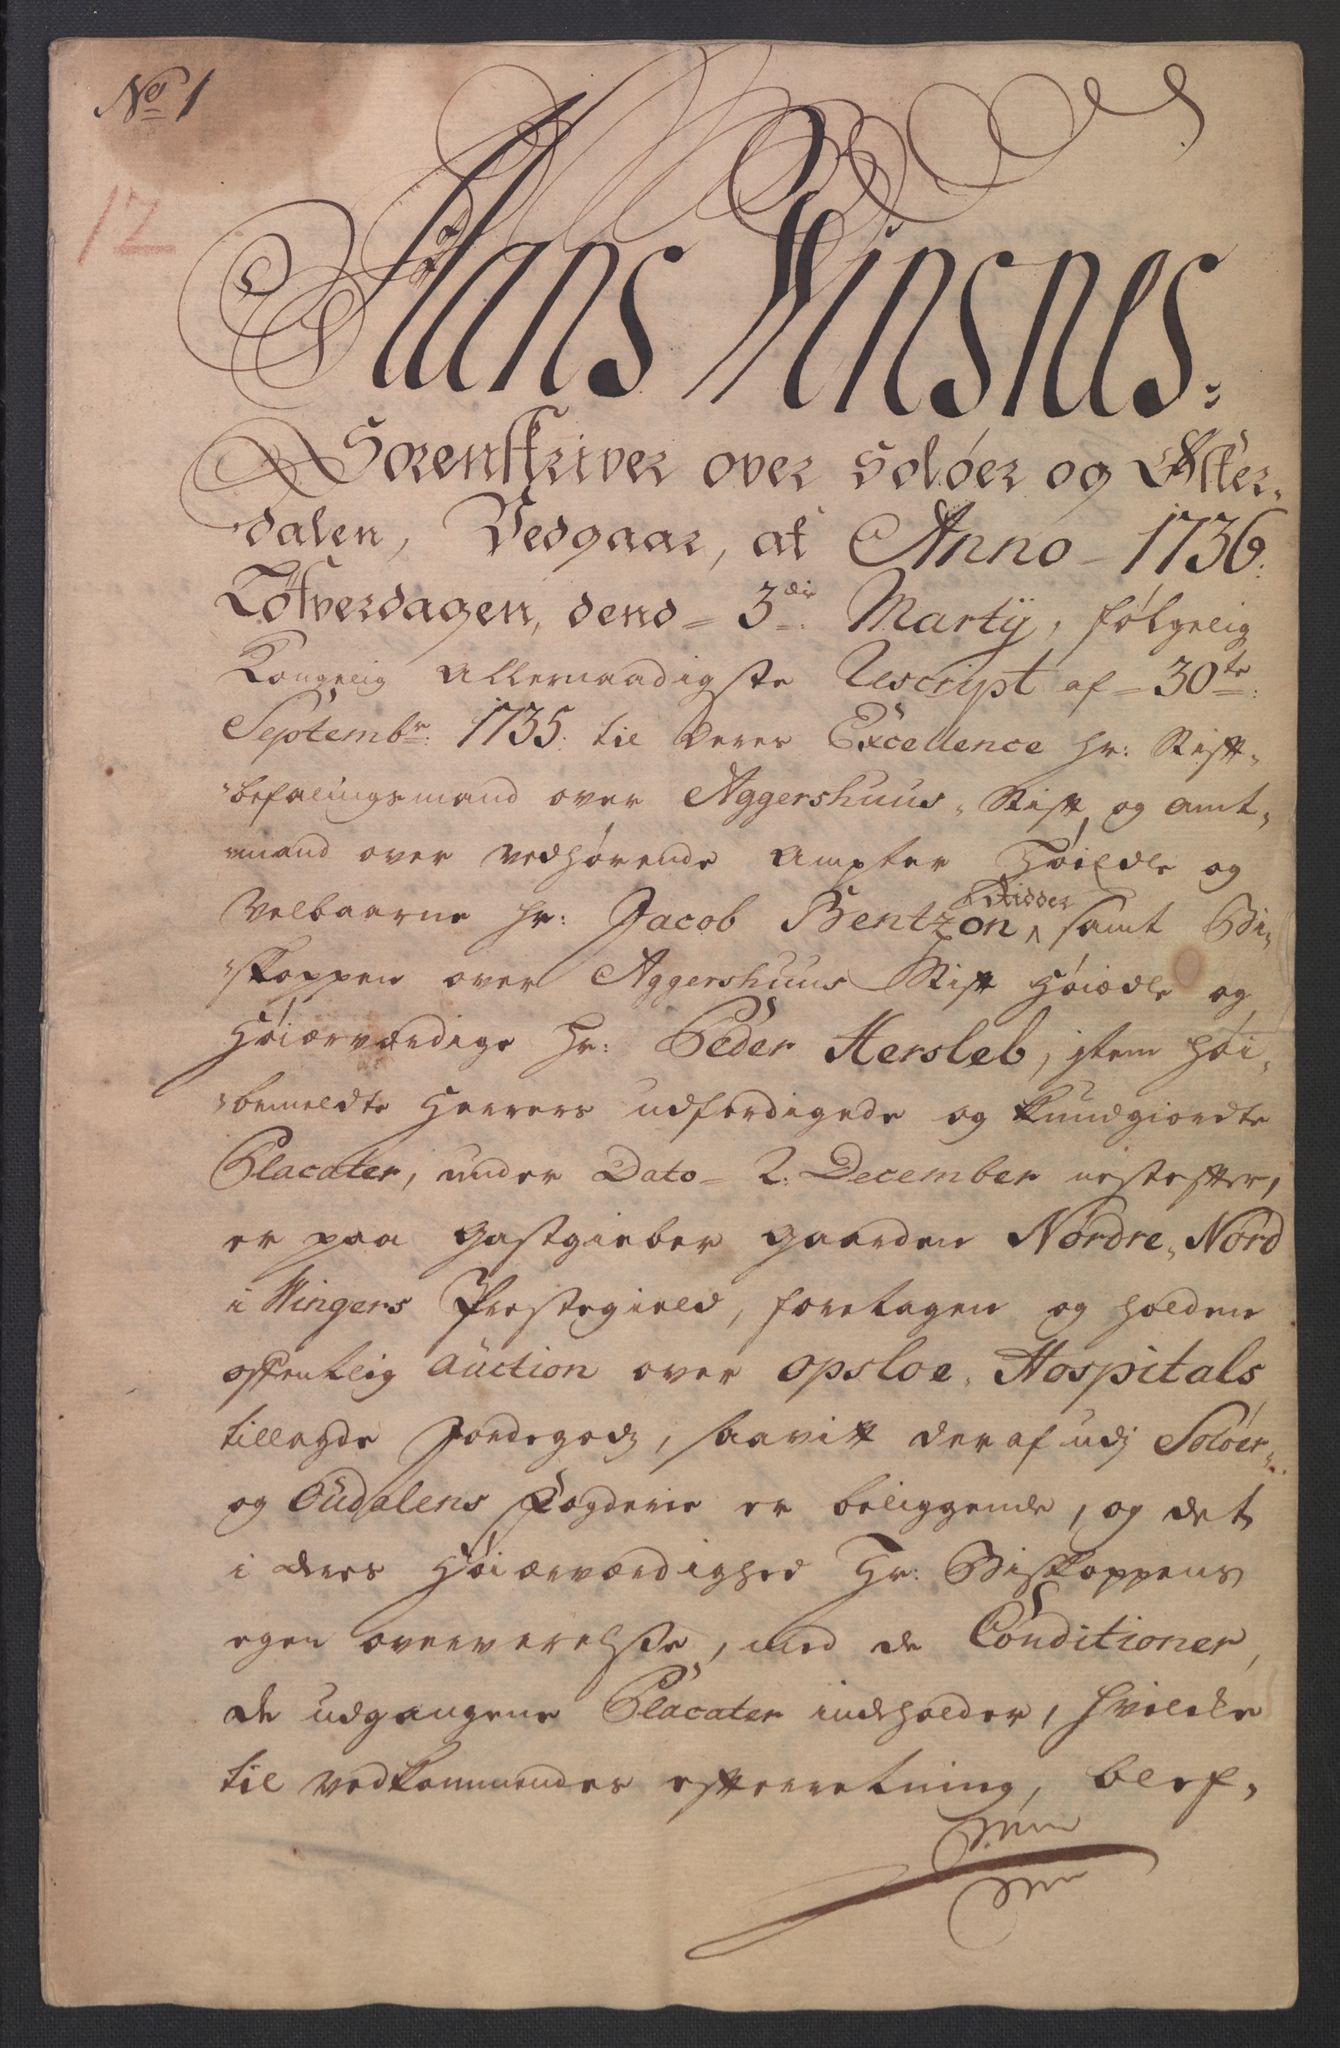 No 1
12
Hans Winsnes.
Sorenskriver over Soløer og Øster-
dalen, Vedgaar, at Anno 1736.
Løfverdagen, dend 3die Martij, følgelig
Kongelig Allernaadigste Rescript af 30te
Septembr: 1735. til Deres Excellence Hr: Stift-
befalingsmand over Aggershuus Stift, og Amt-
mand over vedhørende Ampter Høiædle og
Velbaarne Hr: Jacob Bentzon, Ridder samt Bi-
skoppen over Aggershuus Stift Høiædle og
Høiærværdige Hr: Peder Hersleb, jtem Høi-
bemeldte Herrers udferdigede og kundgiordte
Placater, under Dato 2. December nestefter,
er paa Gastgieber gaarden Nordre Nord
i Wingers Præstegield, foretagen og holden
offentlig Auction over Opsloe Hospitals
tillagde Jordegodz, saavitt deraf udj Soløer
og Oudalens Fogderie er beliggende, og det
i Deres Høiærværdighed Hr: Biskoppens
egen overværelse, med de Conditioner,
de udgangene Placater indeholder, hvilcke
til vedkommendes efterretning, blef